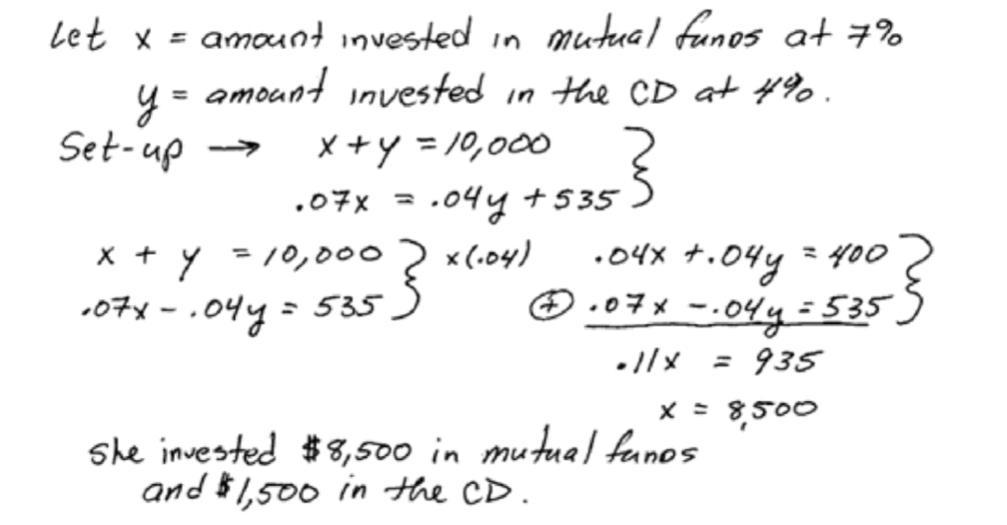 Let x = amount invested in mutual funds at 7%
y = amount invested in the CD at 4%.
Set-up → x + y = 10,000 }
.07x = .04y + 535
x + y = 10,000 } x(.04) .04x + .04y = 400 }
.07x - .04y = 535 ⊕ .07x - .04y = 535
.11x = 935
x = 8,500
She invested $8,500 in mutual funds
and $1,500 in the CD.